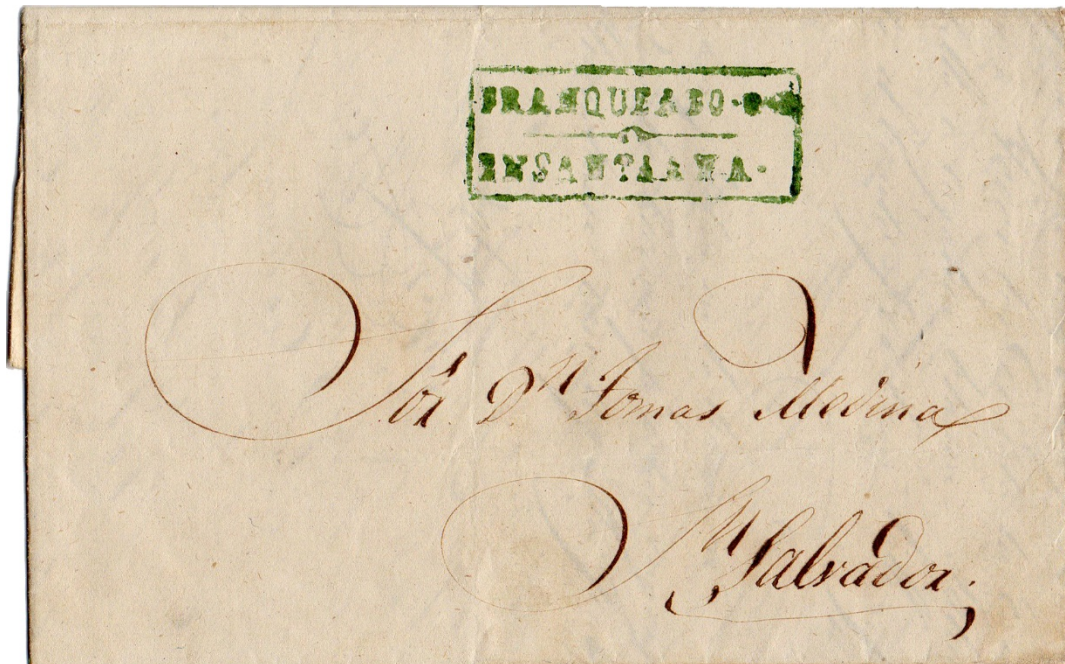 FRANQUEADO
EN SANTA ANA.
Sor. Dn. Tomas Medina
Sn Salvador.